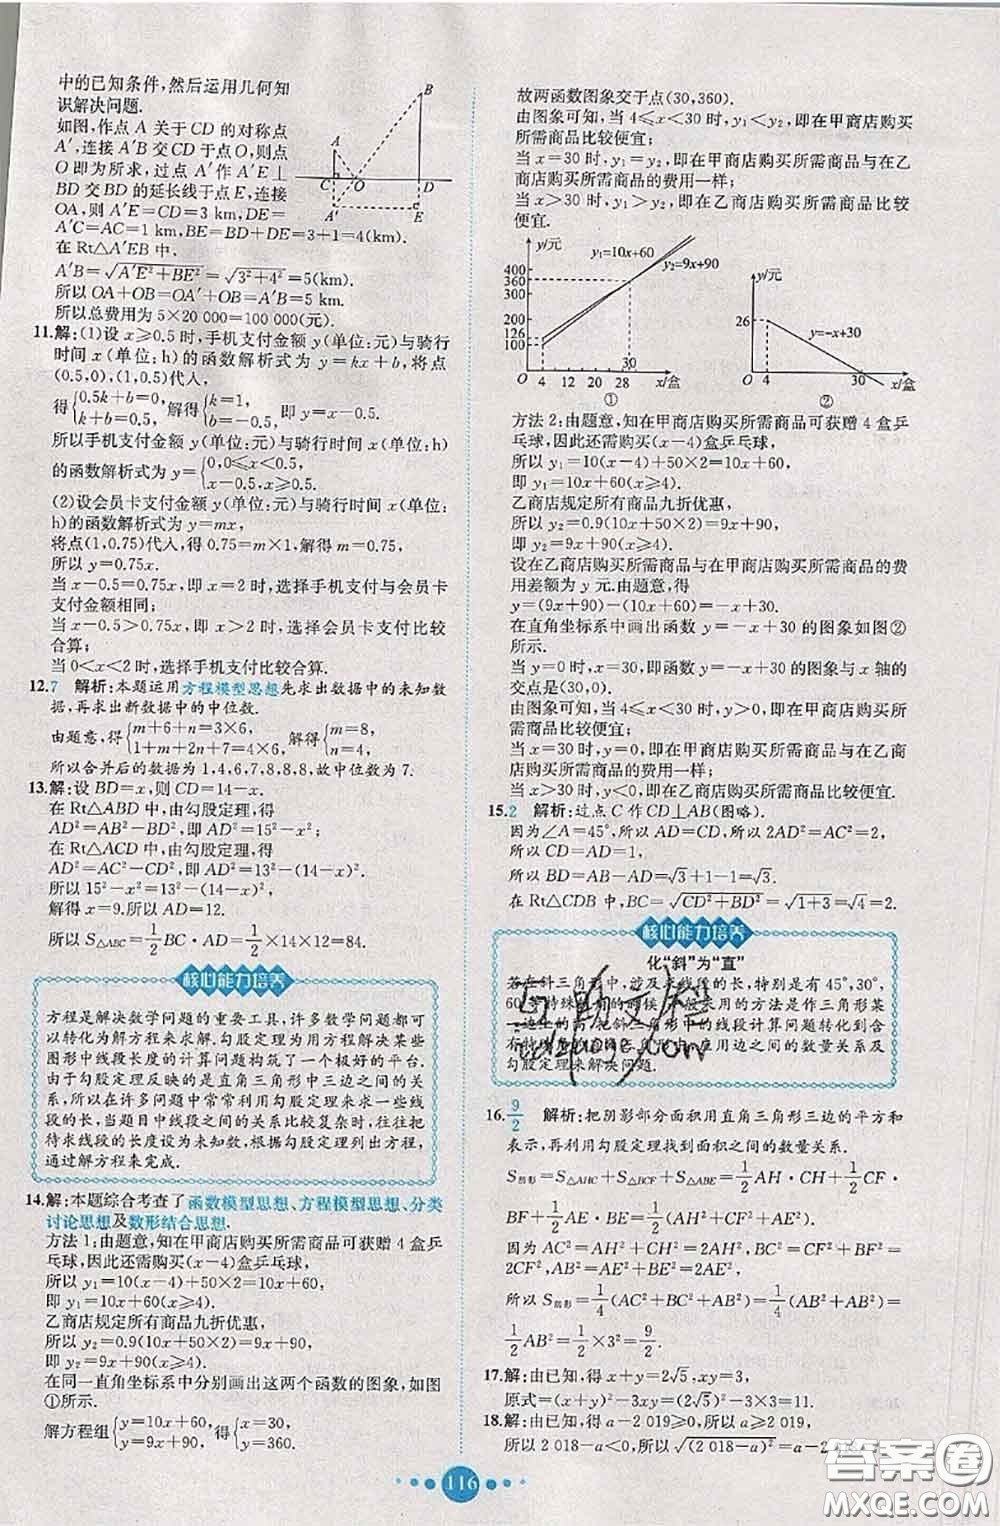 中的已知条件,然后运用几何知
识解决问题.
如图,作点 A 关于CD 的对称点
A′,连接 A′B 交 CD 于点O,则点
O 即为所求,过点 A′作 A′E⊥
BD 交 BD 的延长线于点 E,连接
OA,则 A′E=CD=3 km,DE=
A′C=AC=1 km,BE=BD+DE=3+1=4(km).
在 Rt△A′EB 中,
A′B=√(A′E²+BE²)=√(3²+4²)=5(km).
所以 OA+OB=OA′+OB=A′B=5(km).
所以总费用为 5×20 000=100 000(元).
A
B
C
O
D
A′
E
11.解:(1)设 x≥0.5 时,手机支付金额 y(单位:元)与骑行
时间 x(单位:h)的函数解析式为 y=kx+b,将点
(0.5,0),(1,0.5)代入,
得{0.5k+b=0, k+b=0.5, 解得{k=1, b=-0.5, 即 y=x-0.5.
所以手机支付金额 y(单位:元)与骑行时间 x(单位:h)
的函数解析式为 y={0,0≤x<0.5, x-0.5,x≥0.5.
(2)设会员卡支付金额 y(单位:元)与骑行时间 x(单位:
h)的函数解析式为 y=mx,
将点(1,0.75)代入,得 0.75=m×1,解得 m=0.75,
所以 y=0.75x.
当 x-0.5=0.75x,即 x=2 时,选择手机支付与会员卡
支付金额相同;
当 x-0.5>0.75x,即 x>2 时,选择会员卡支付比较
合算;
当 0<x<2 时,选择手机支付比较合算.
12.7 解析:本题运用方程模型思想先求出数据中的未知数
据,再求出新数据中的中位数.
由题意,得{m+6+n=3×6, 1+m+2n+7=4×6, 解得{m=8, n=4.
所以合并后的数据为 1,4,6,7,8,8,8,故中位数为 7.
13.解:设 BD=x,则 CD=14-x.
在 Rt△ABD 中,由勾股定理,得
AD²=AB²-BD²,即 AD²=15²-x²;
在 Rt△ACD 中,由勾股定理,得
AD²=AC²-CD²,即 AD²=13²-(14-x)².
所以 15²-x²=13²-(14-x)².
解得 x=9.所以 AD=12.
所以 S△ABC=1/2 BC·AD=1/2×14×12=84.
核心能力培养
方程是解决数学问题的重要工具,许多数学问题都可
以转化为解方程来求解.勾股定理为用方程解决某些
图形中线段长度的计算问题构筑了一个极好的平台.
由于勾股定理反映的是直角三角形中三边之间的关
系,所以在许多问题中常常利用勾股定理来求一些线
段的长,当题目中线段的关系比较复杂时,往往把
待求线段的长度设为未知数,根据勾股定理列出方程,
通过解方程来完成.
14.解:本题综合考查了函数模型思想、方程模型思想、分类
讨论思想及数形结合思想.
方法 1:由题意,知在甲商店购买所需商品可获赠 4 盒乒
乓球,因此还需购买(x-4)盒乒乓球,
所以 y₁=10(x-4)+50×2=10x+60,
即 y₁=10x+60(x≥4).
乙商店规定所有商品九折优惠,
所以 y₂=0.9(10x+50×2)=9x+90,
即 y₂=9x+90(x≥4).
在同一直角坐标系中分别画出这两个函数的图象,如图
①所示.
解方程组{y=10x+60, y=9x+90, 得{x=30, y=360.
故两函数图象交于点(30,360).
由图象可知,当 4≤x<30 时,y₁<y₂,即在甲商店购买
所需商品比较便宜;
当 x=30 时,y₁=y₂,即在甲商店购买所需商品与在乙
商店购买所需商品的费用一样;
当 x>30 时,y₁>y₂,即在乙商店购买所需商品比较
便宜.
y/元
y₁=10x+60
y₂=9x+90
400
360
300
200
126
100
30
O 4 12 20 28 x/盒
①
y/元
26
y=-x+30
O 4 30 x/盒
②
方法 2:由题意,知在甲商店购买所需商品可获赠 4 盒乒
乓球,因此还需购买(x-4)盒乒乓球,
所以 y₁=10(x-4)+50×2=10x+60,
即 y₁=10x+60(x≥4).
乙商店规定所有商品九折优惠,
所以 y₂=0.9(10x+50×2)=9x+90,
即 y₂=9x+90(x≥4).
设在乙商店购买所需商品与在甲商店购买所需商品的费
用差额为 y 元.由题意,得
y=(9x+90)-(10x+60)=-x+30.
在直角坐标系中画出函数 y=-x+30 的图象如图②
所示.
当 y=0 时,x=30,即函数 y=-x+30 的图象与 x 轴的
交点是(30,0).
由图象可知,当 4≤x<30 时,y>0,即在甲商店购买所
需商品比较便宜;
当 x=30 时,y=0,即在甲商店购买所需商品与在乙商
店购买所需商品的费用一样;
当 x>30 时,y<0,即在乙商店购买所需商品比较便宜.
15.2 解析:过点 C 作 CD⊥AB(图略).
因为∠A=45°,所以 AD=CD,所以 2AD²=AC²=2,
所以 CD=AD=1,
所以 BD=AB-AD=√3+1-1=√3.
在 Rt△CDB 中,BC=√(CD²+BD²)=√(1+3)=√4=2.
核心能力培养
化“斜”为“直”
若在斜三角形中,涉及求线段的长,特别是有 45°,30°,
60°等特殊的时候,一般采用的方法是作三角形某
一边上的高,把斜三角形中的线段计算问题转化到含
有特殊应用边之间的数量关系及
勾股定理来解决问题.
16.9/2 解析:把阴影部分面积用直角三角形三边的平方和
表示,再利用勾股定理找到面积之间的数量关系.
S阴影=S△ACH+S△BCF+S△ABE=1/2 AH·CH+1/2 CF·
BF+1/2 AE·BE=1/2(AH²+CF²+AE²).
因为 AC²=AH²+CH²=2AH²,BC²=CF²+BF²=
2CF²,AB²=AE²+BE²=2AE²,
所以 S阴影=1/4(AC²+BC²+AB²)=1/4(AB²+AB²)=
1/2 AB²=1/2×3²=9/2.
17.解:由已知,得 x+y=2√5,xy=3,
原式=(x+y)²-3xy=(2√5)²-3×3=11.
18.解:由已知,得 a-2 019≥0,所以 a≥2 019,
所以 2 018-a<0,所以√((2 018-a)²)=a-2
116
答案圈
MXQE.COM